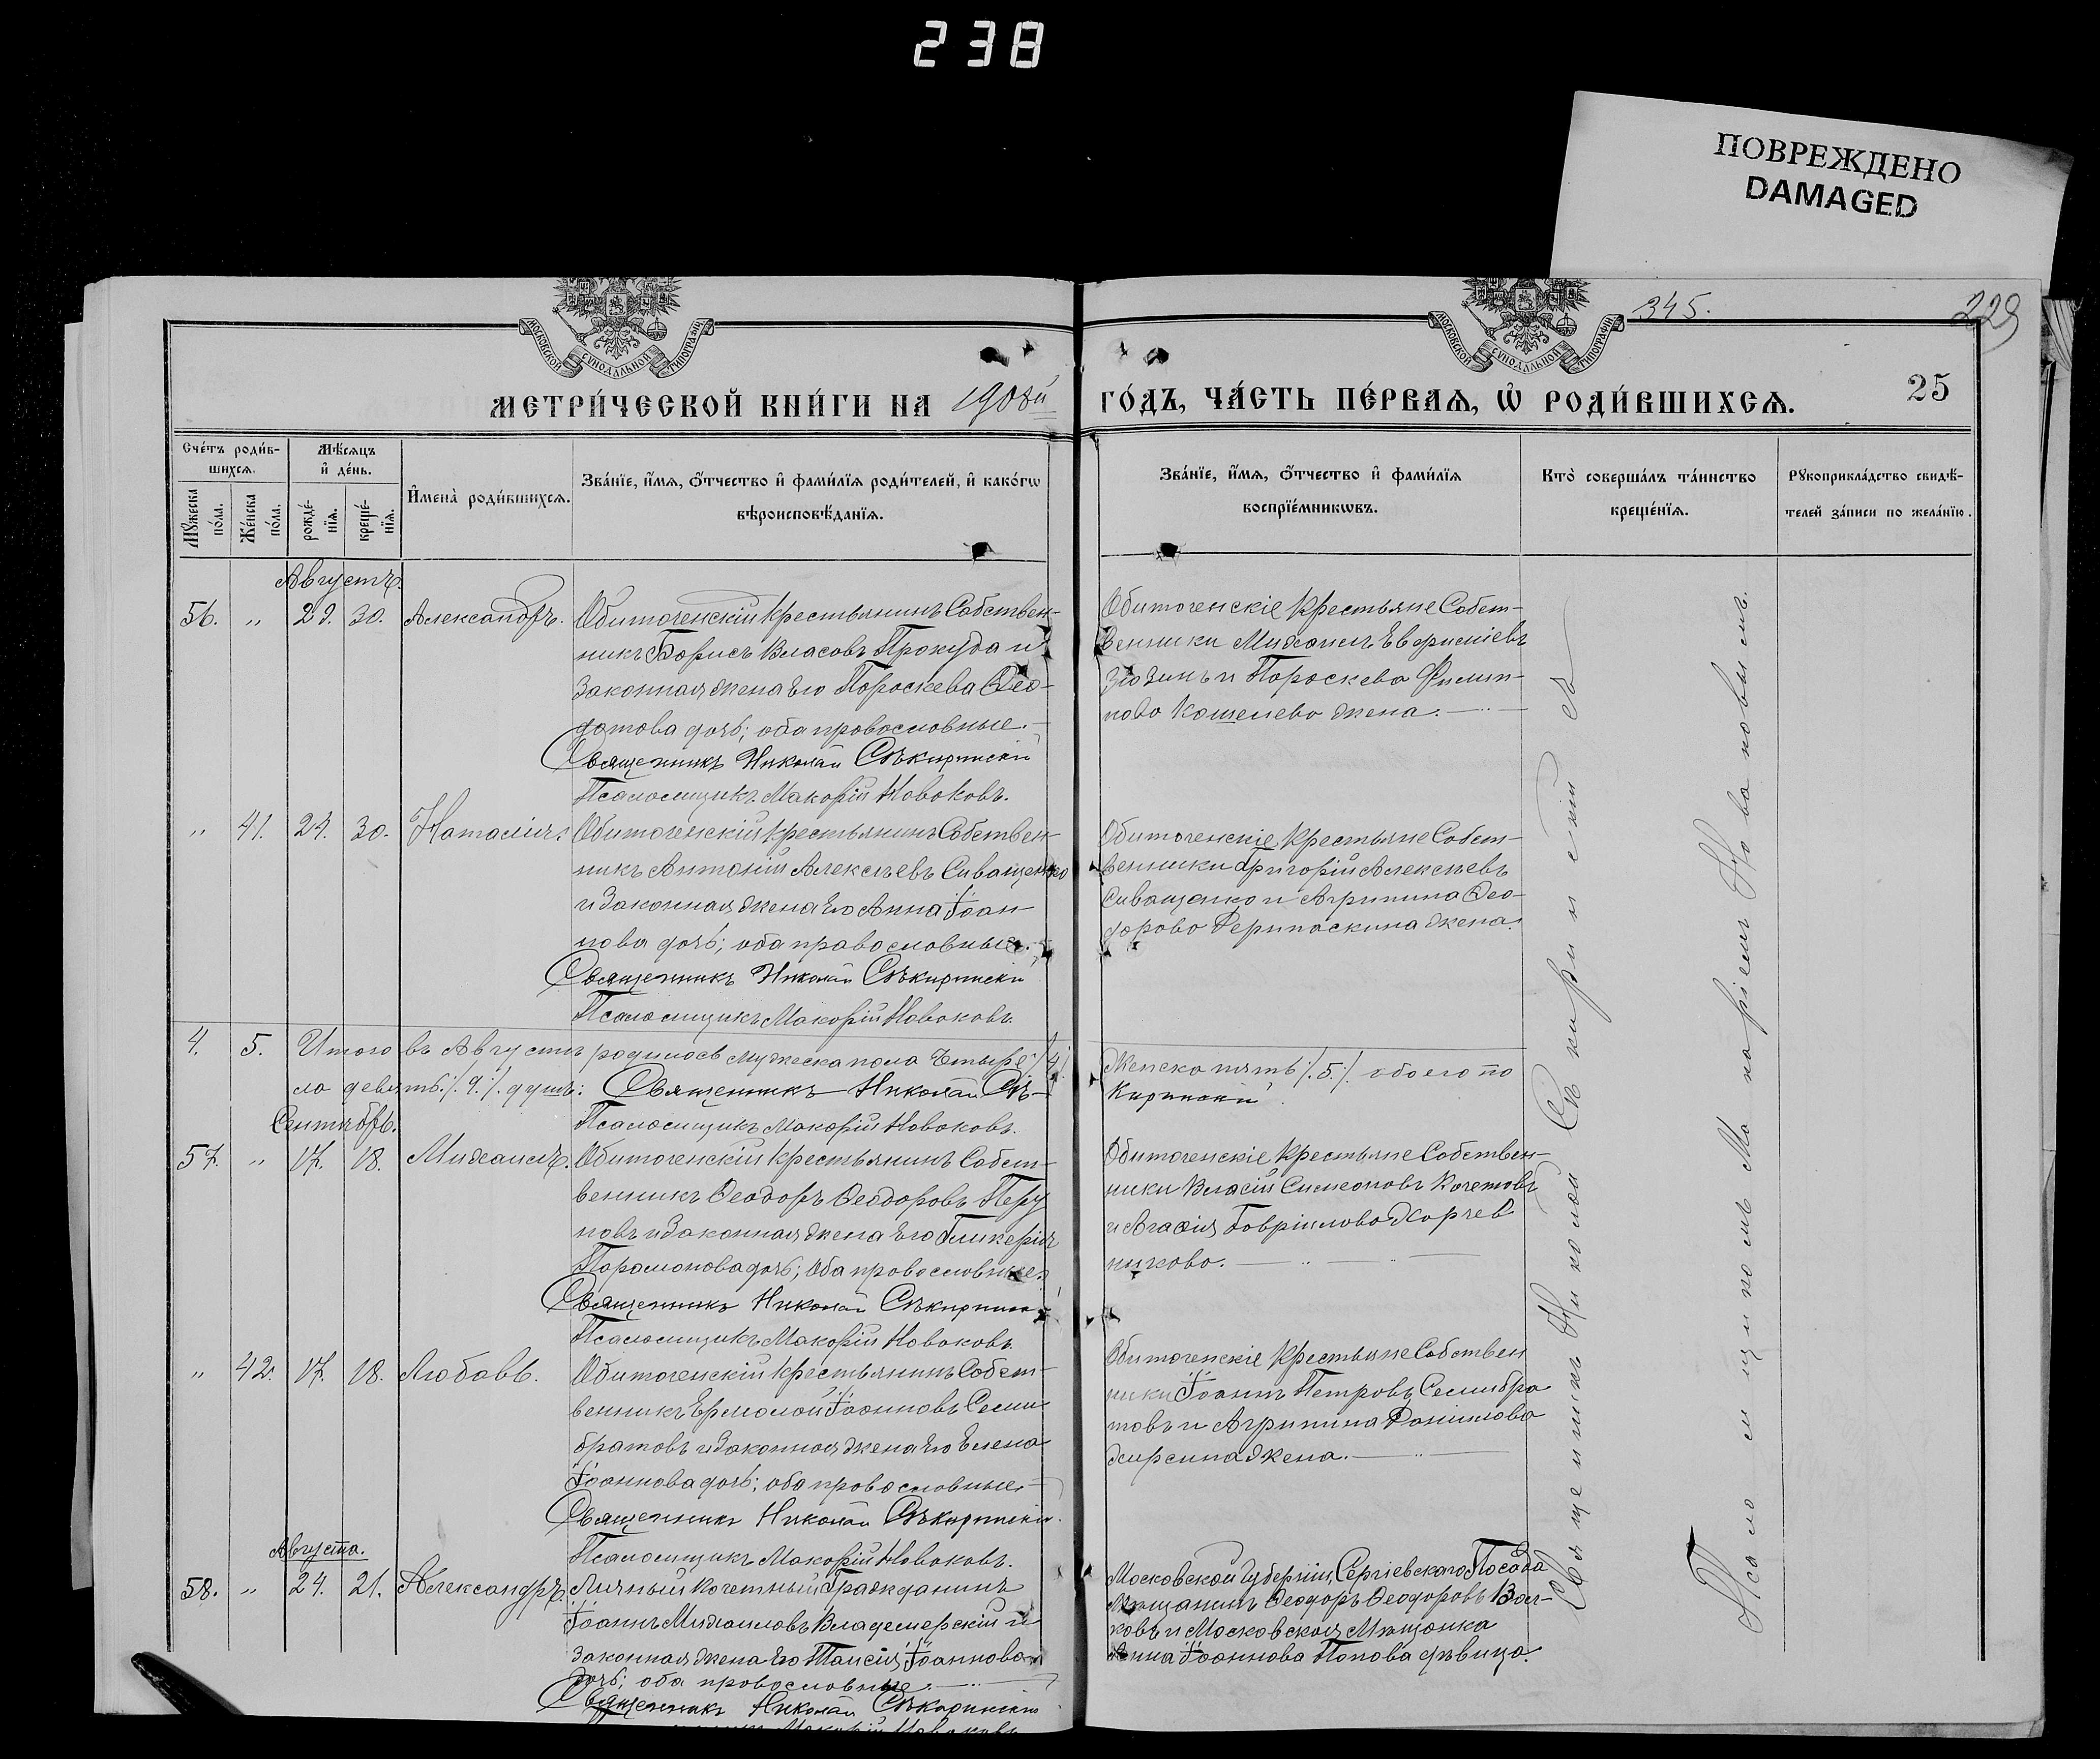 238
ПОВРЕЖДЕНО
DAMAGED
345.
229
МОСКОВСКОЙ СУНОДАЛЬНОЙ ТИПОГРАФІИ
МОСКОВСКОЙ СУНОДАЛЬНОЙ ТИПОГРАФІИ
МЕТРИ́ЧЕСКОЙ КНИ́ГИ НА 1908й
ГО́ДЪ, ЧА́СТЬ ПЕ́РВАѦ, Ѡ҆ РОДИ́ВШИХСѦ.
25
Сче́тъ роди́в-
шихсѧ.
Мѣ́сѧцъ
и҆ де́нь.
Мꙋ́жеска
по́ла.
Же́нска
по́ла.
рожде́-
нїѧ.
креще́-
нїѧ.
И҆мена̀ роди́вшихсѧ.
Зва́нїе, и҆́мѧ, ѻ҆́тчество и҆ фами́лїѧ роди́телей, и҆ како́гѡ
вѣроисповѣ́данїѧ.
Зва́нїе, и҆́мѧ, ѻ҆́тчество и҆ фами́лїѧ
воспрїе́мникѡвъ.
Кто̀ соверша́лъ та́инство
креще́нїѧ.
Рꙋкоприкла́дство свидѣ́-
телей за́писи по жела́нїю.
Августъ.
56. " 29. 30. Александръ. Обиточенскій крестьянинъ Собствен-
никъ Борисъ Власовъ Прокуда и
законная жена его Параскева Ѳео-
дотова дочь; оба православные.
Священникъ Николай Сѣкиринскій
Псаломщикъ Макарій Новаковъ.
Обиточенскіе крестьяне Собст-
венники Михаилъ
и Параскева Филип-
пова Кошелева жена.
" 41. 24. 30. Наталія. Обиточенскій крестьянинъ Собствен-
никъ Антоній Алексѣевъ Сиващенко
и законная жена его Анна Іоан-
нова дочь; оба православные.
Священникъ Николай Сѣкиринскій
Псаломщикъ Макарій Новаковъ.
Обиточенскіе крестьяне Собст-
венники Григорій Алексѣевъ
Сиващенко и Агрипина Ѳео-
дорова жена.
4. 5. Итого въ Августѣ родилось мужеска пола четыре /4/
Женска пять /.5./. обоего по
ла девять ./.9./. душъ: Священникъ Николай Сѣ-
киринскій
Псаломщикъ Макарій Новаковъ.
Сентябрь.
57. " 17. 18. Михаилъ. Обиточенскій крестьянинъ Собст-
венникъ Ѳеодоръ Ѳеодоровъ Перу
новъ и законная жена его Гликерія
Парамонова дочь; оба православные.
Священникъ Николай Сѣкиринскій
Псаломщикъ Макарій Новаковъ.
Обиточенскіе крестьяне Собствен-
ники Власій Симеоновъ Кочетовъ
и Агафія Гавріилова
" 42. 17. 18. Любовь. Обиточенскій крестьянинъ Собст-
венникъ Ермолай Іоанновъ Семи
братовъ и законная жена его Елена
Іоаннова дочь; оба православные.
Священникъ Николай Сѣкиринскій
Псаломщикъ Макарій Новаковъ.
Обиточенскіе крестьяне Собствен
ники Іоаннъ Петровъ Семибра
товъ и Агрипина Данилова
жена.
Августа.
58. " 24. 21. Александръ. Личный Гражданинъ
Іоаннъ Михаиловъ и
законная жена его Таисія Іоаннова
дочь; оба православные.
Священникъ Николай Сѣкиринскій
Макарій Новаковъ
Московской губерніи, Сергіевскаго Посада
Мѣщанинъ Ѳеодоръ Ѳеодоровъ Вол-
ковъ и Московская Мѣщанка
Анна Іоаннова Попова дѣвица.
Священникъ Николай Сѣкиринскій
Псаломщикомъ Макаріемъ Новаковымъ.